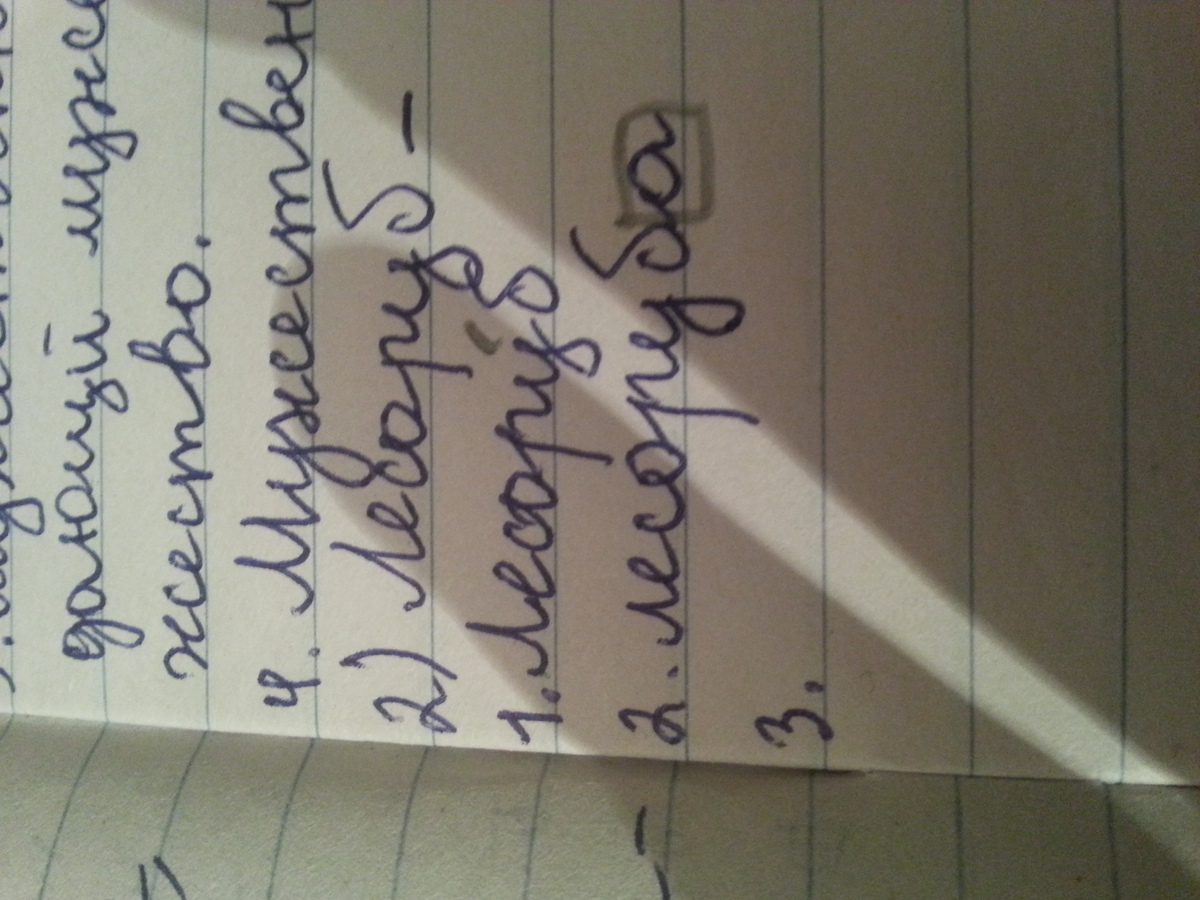 дающий муже
жество.
4. Мужествен
2) Лесоруб -
1. Лесору́б
2. лесоруба
3.